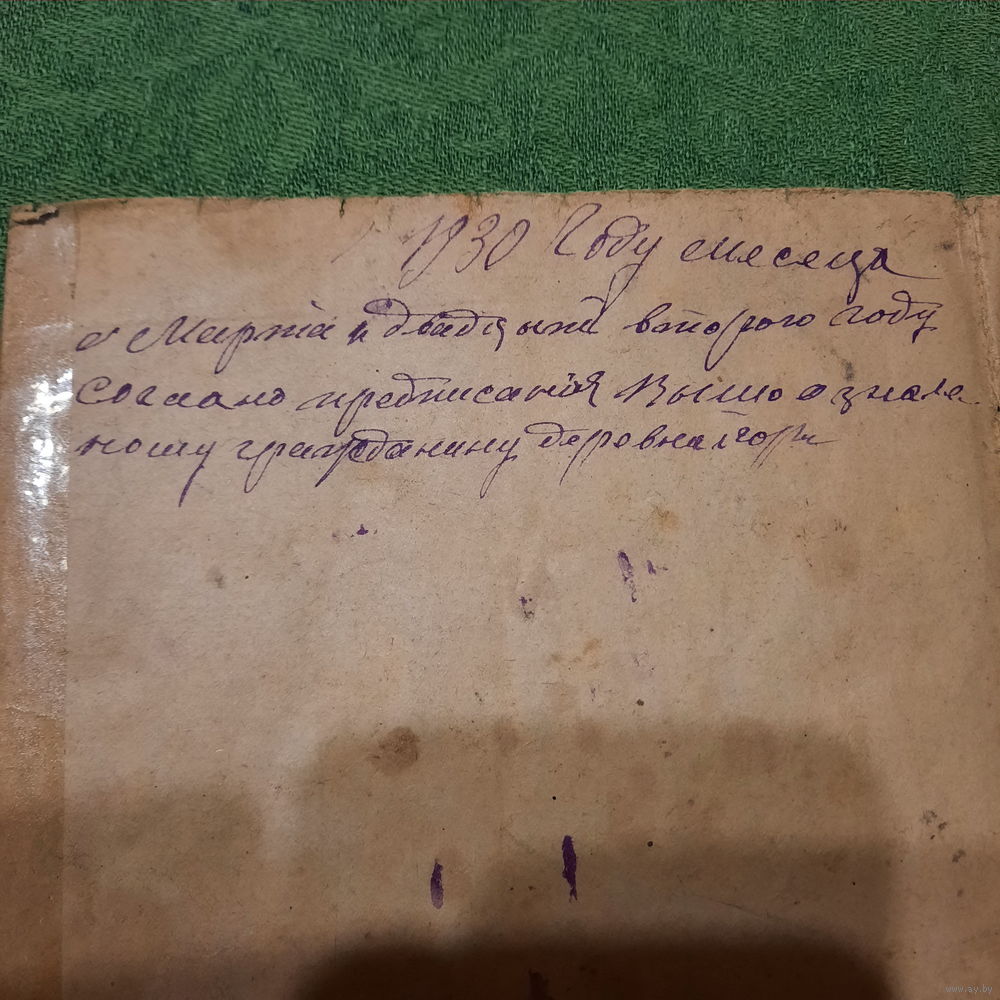 1930 Году месеца
Марта двадцать второго году
Согласно предписания Вышо означе
ному гражданину
www.ay.by